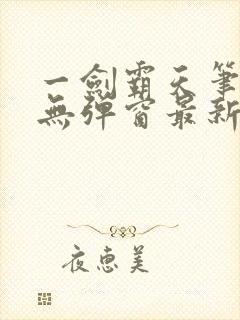 一劍霸天筆
無彈窗最新
夜惠美